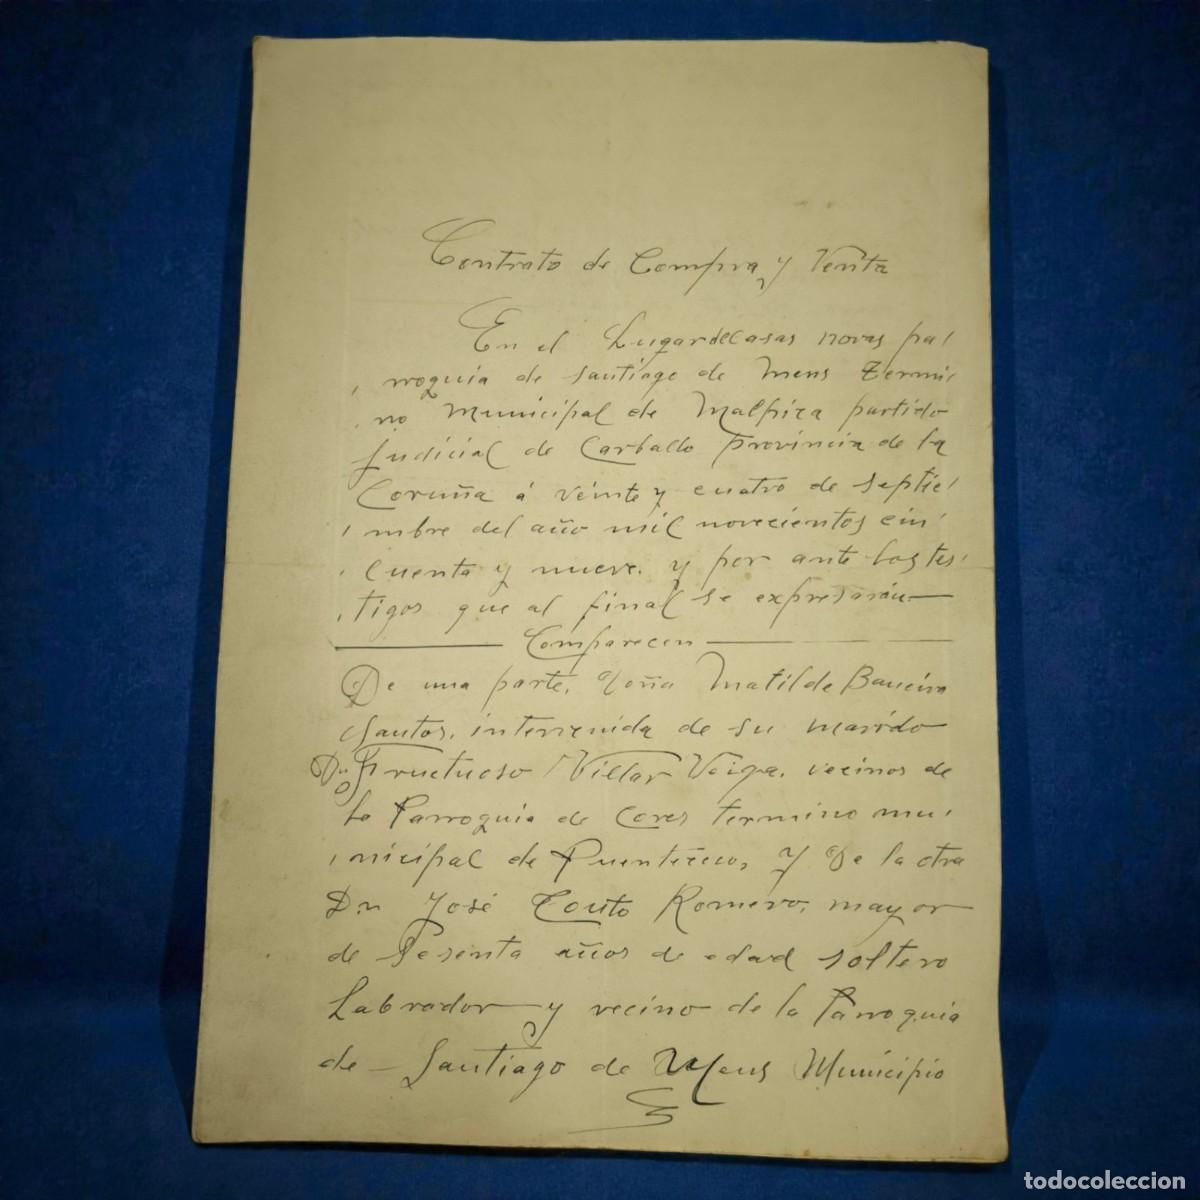 Contrato de Compra y Venta
En el Lugar de Casas novas pa/
/ rroquia de Santiago de Mens termi/
/ no Municipal de Malpica partido
Judicial de Carballo provincia de la
Coruña á veinte y cuatro de Septie/
/ mbre del año mil novecientos cin/
/ cuenta y nueve. y por ante los tes/
/ tigos que al final se expresarán—
Comparecen
De una parte, Doña Matilde Baneira
Santos, intervenida de su marido
Dn Fructuoso Villar Veiga. vecinos de
la Parroquia de Cores termino mu/
/ nicipal de Puenteceso, y De la otra
Dn José Couto Romero, mayor
de Sesenta años de edad soltero
Labrador y vecino de la Parroquia
de – Santiago de Mens Municipio
todocoleccion